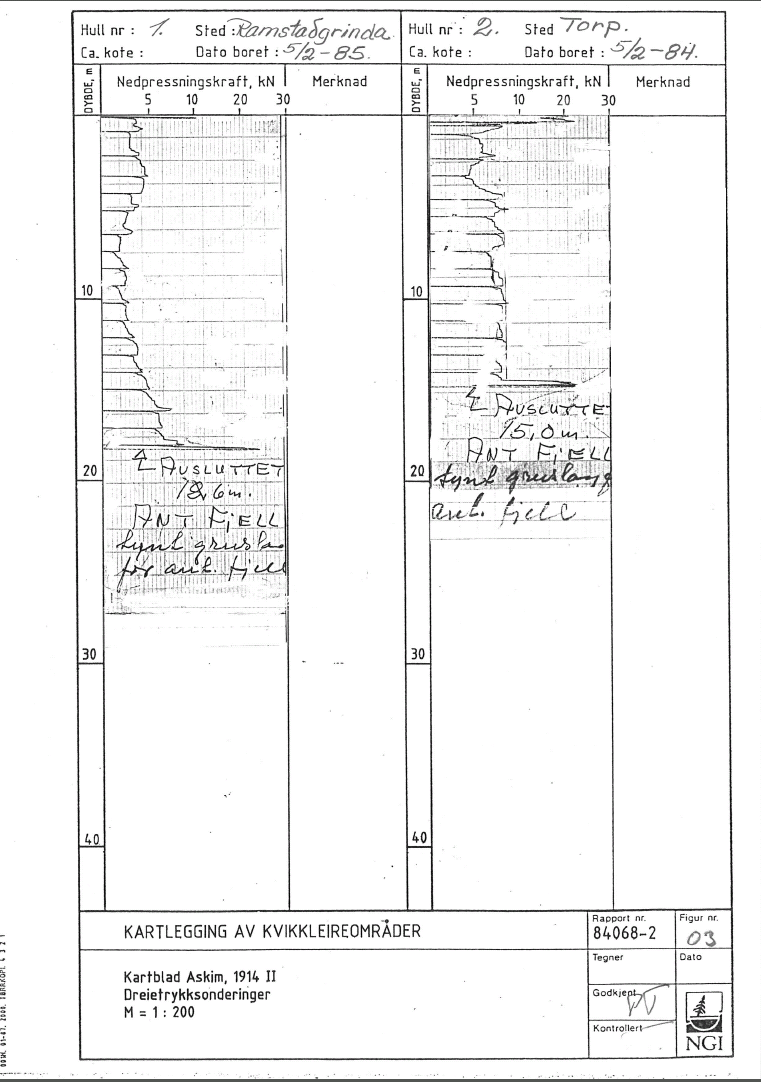 Hull nr : 1. Sted : Ramstadgrinda
Ca. kote : Dato boret : 5/2-85.
DYBDE, m
Nedpressningskraft, kN
Merknad
5 10 20 30
10
20
30
40
AVSLUTTET
18,6m.
ANT FJELL
tynt grusla
før ant. fjell
Hull nr : 2. Sted Torp.
Ca. kote : Dato boret : 5/2-84.
DYBDE, m
Nedpressningskraft, kN
Merknad
5 10 20 30
10
20
30
40
AVSLUTTET
15,0m.
ANT FJELL
tynt gruslag
ant. fjell
KARTLEGGING AV KVIKKLEIREOMRÅDER
Kartblad Askim, 1914 II
Dreietrykksonderinger
M = 1 : 200
Rapport nr.
84068-2
Figur nr.
03
Tegner
Dato
Godkjent
Kontrollert
NGI